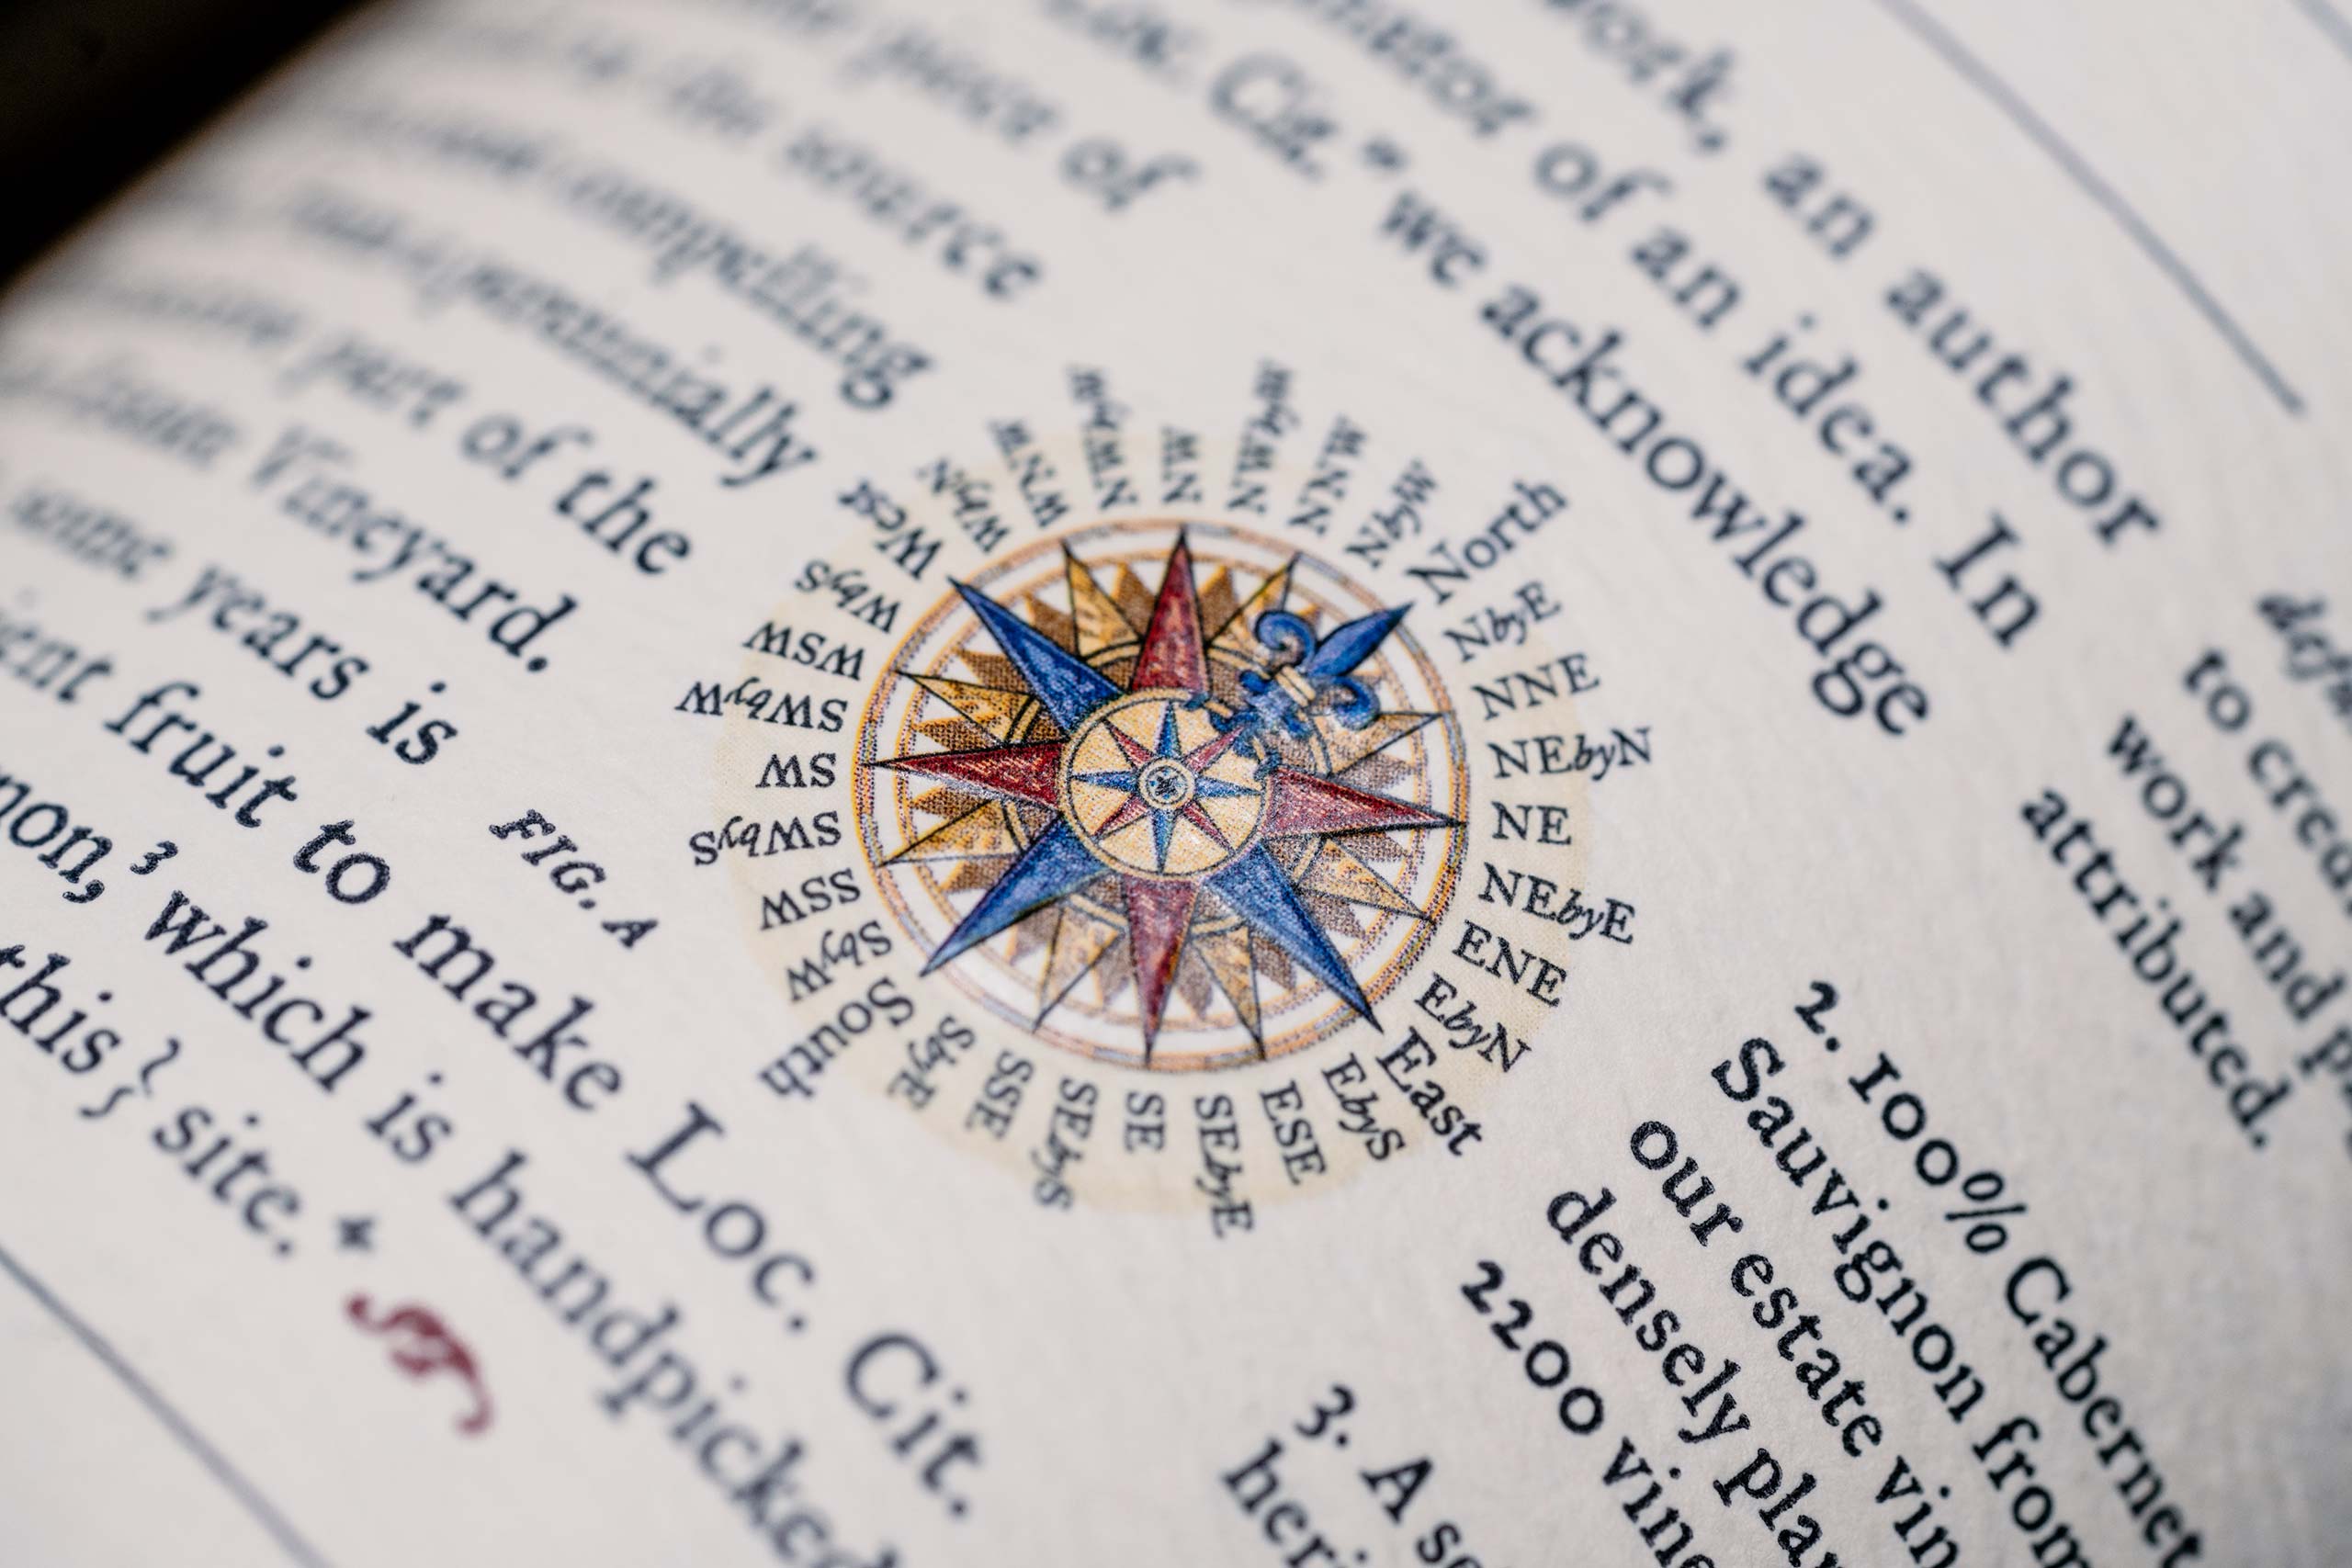 work, an author
of an idea. In
Cit." we acknowledge
piece of
the source
compelling
perennially
part of the
Vineyard.
some years is
fruit to make Loc. Cit.
non,³ which is handpicked
this } site. *
FIG. A
North
NbyE
NNE
NEbyN
NE
NEbyE
ENE
EbyN
East
EbyS
ESE
SEbyE
SE
SEbyS
SSE
SbyE
South
SbyW
SSW
SWbyS
SW
SWbyW
WSW
WbyS
West
WbyN
WNW
NWbyW
NW
NWbyN
NNW
NbyW
to cred
work and p
attributed.
2. 100% Cabernet
Sauvignon from
our estate vin
densely plan
2200 vine
3. A se
heri